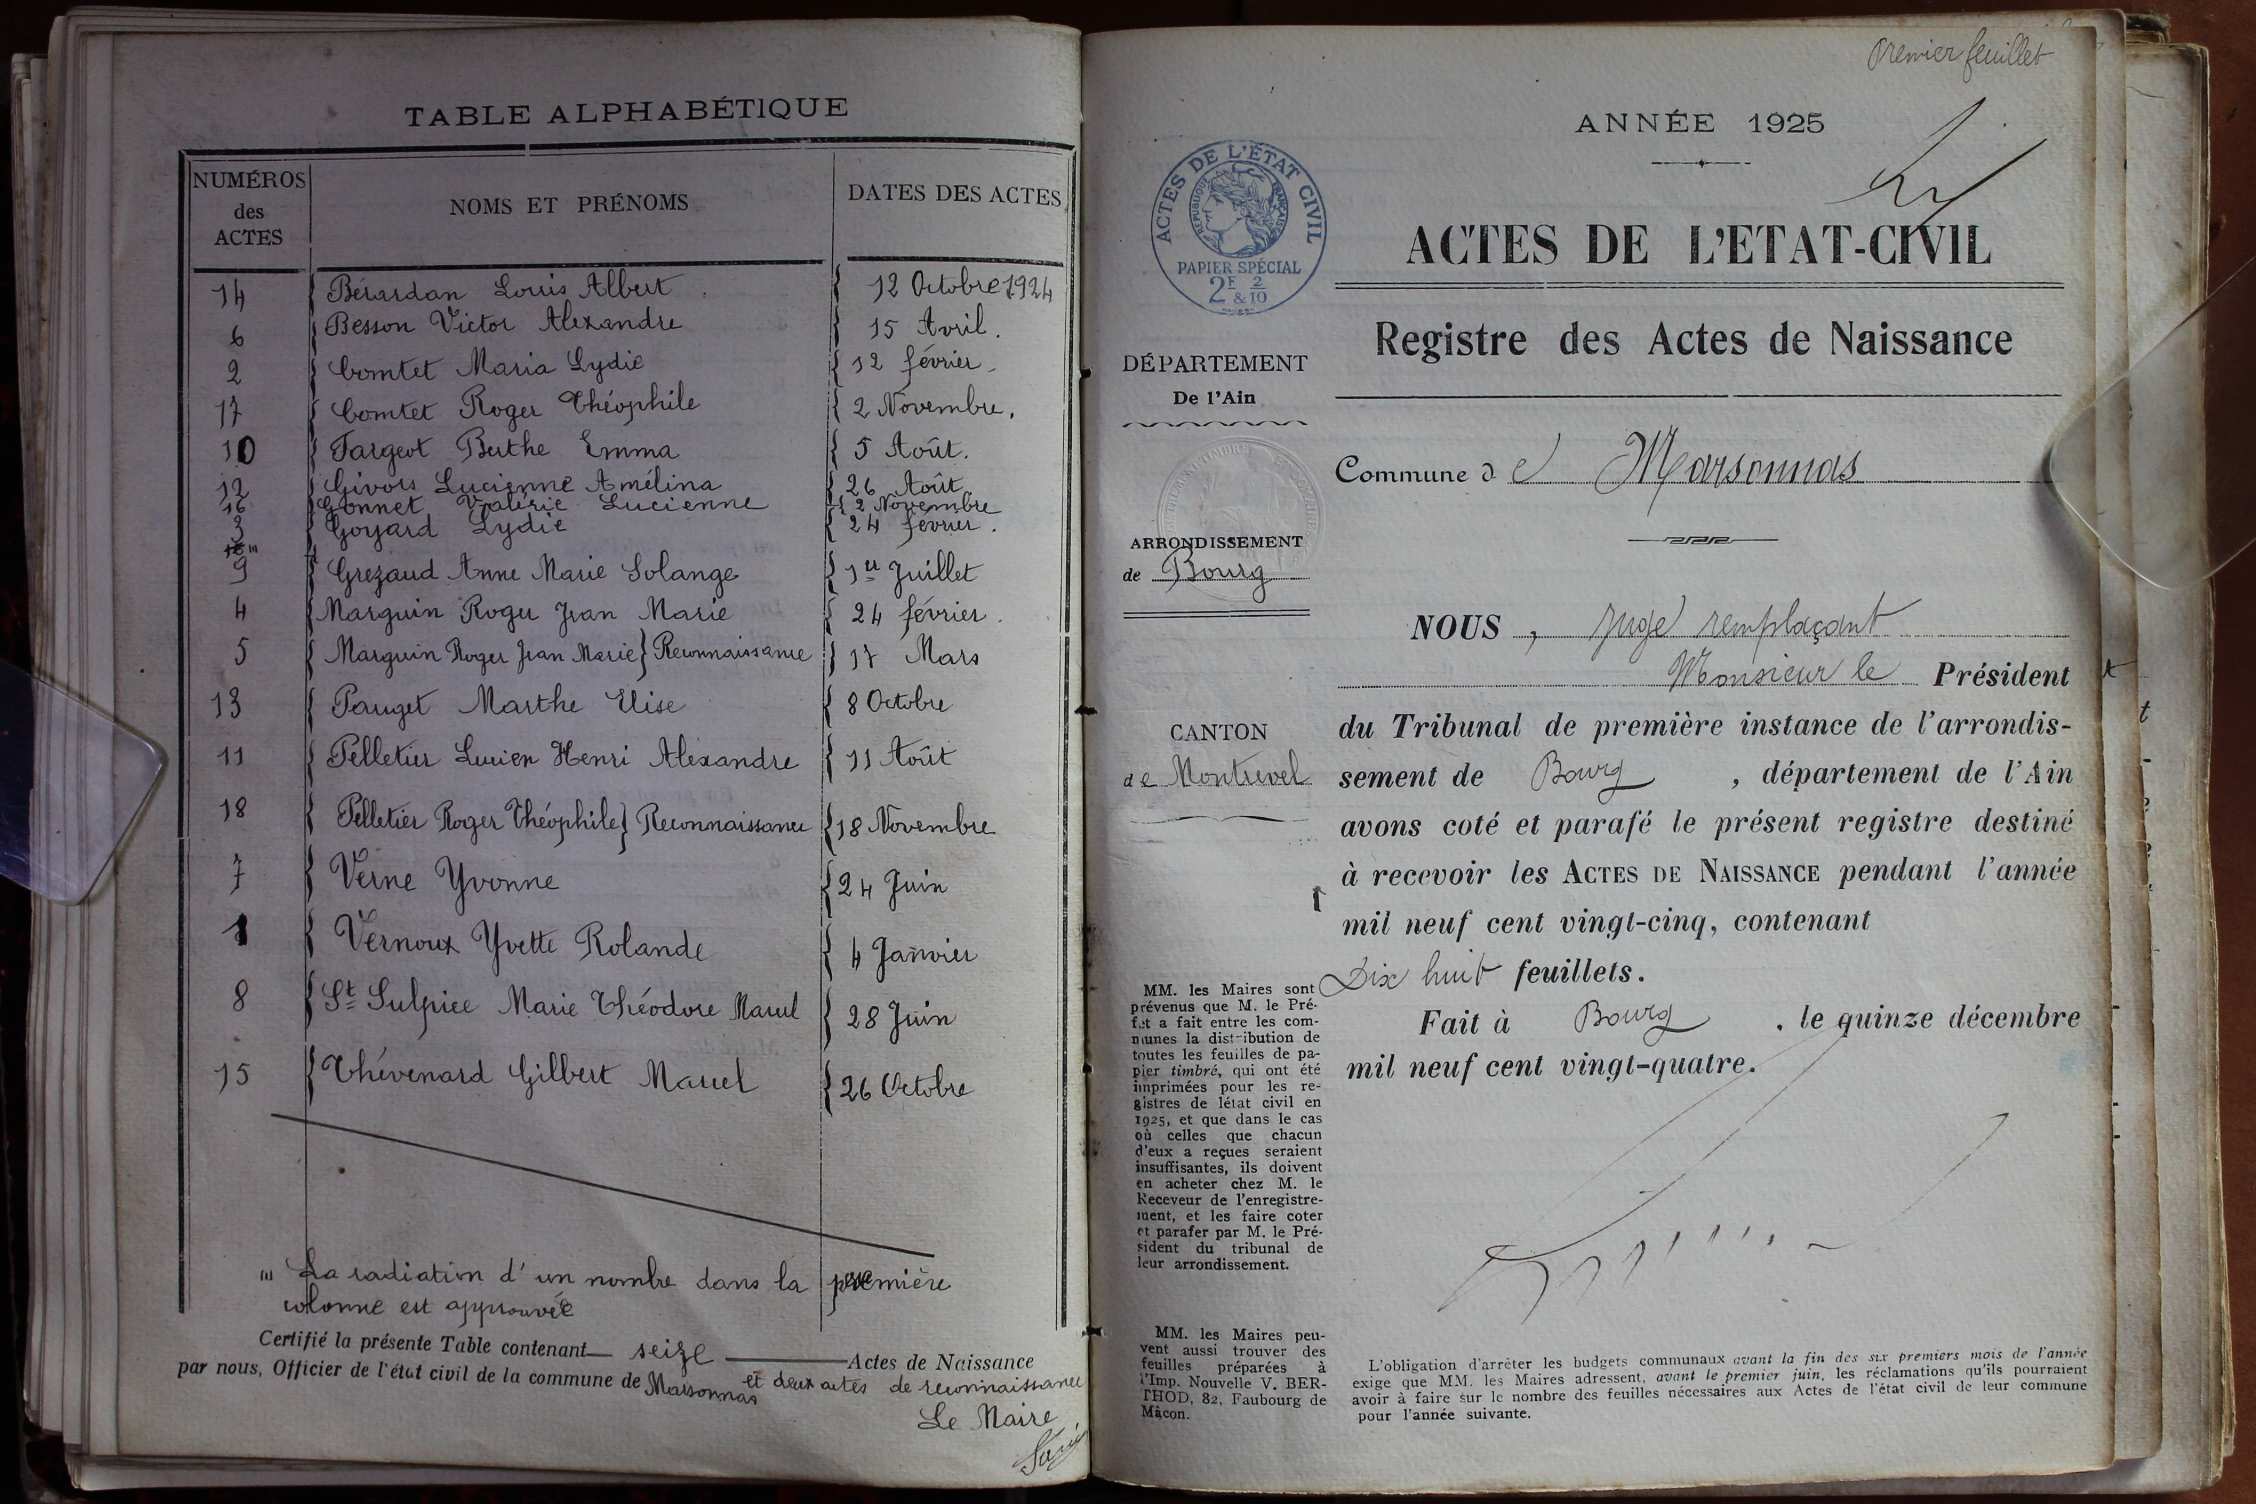 TABLE ALPHABÉTIQUE
NUMÉROS des ACTES
NOMS ET PRÉNOMS
DATES DES ACTES
14 Bérardan Louis Albert 12 Octobre 1924
6 Besson Victor Alexandre 15 Avril.
2 Comtet Maria Lydie 12 février
17 Comtet Roger Théophile 2 Novembre.
10 Fargeot Berthe Emma 5 Août.
12 Givors Lucienne Amélina 26 Août
16 Gonnet Valérie Lucienne 2 Novembre
3 Goyard Lydie 24 février.
9 Grezaud Anne Marie Solange 1er Juillet
4 Marguin Roger Jean Marie 24 février.
5 Marguin Roger Jean Marie} Reconnaissance 17 Mars
13 Pauget Marthe Elise 8 Octobre
11 Pelletier Lucien Henri Alexandre 11 Août
18 Pelletier Roger Théophile} Reconnaissance 18 Novembre
7 Verne Yvonne 24 Juin
1 Vernoux Yvette Rolande 4 Janvier
8 St Sulpice Marie Théodore Marcel 28 Juin
15 Thévenard Gilbert Marcel 26 Octobre
"' La radiation d'un nombre dans la première
colonne est approuvée
Certifié la présente Table contenant seize Actes de Naissance
et deux actes de reconnaissance
par nous, Officier de l'état civil de la commune de Marsonnas
Le Maire
Premier feuillet
ANNÉE 1925
ACTES DE L'ÉTAT CIVIL
RÉPUBLIQUE FRANÇAISE
PAPIER SPÉCIAL
2F 2
& 10
ACTES DE L'ETAT-CIVIL
Registre des Actes de Naissance
DÉPARTEMENT
De l'Ain
Commune de Marsonnas
ARRONDISSEMENT
de Bourg
CANTON
de Montrevel
NOUS, Juge remplaçant
Monsieur le Président
du Tribunal de première instance de l'arrondis-
sement de Bourg, département de l'Ain
avons coté et parafé le présent registre destiné
à recevoir les ACTES DE NAISSANCE pendant l'année
mil neuf cent vingt-cinq, contenant
Dix huit feuillets.
Fait à Bourg, le quinze décembre
mil neuf cent vingt-quatre.
MM. les Maires sont
prévenus que M. le Pré-
fet a fait entre les com-
munes la distribution de
toutes les feuilles de pa-
pier timbré, qui ont été
imprimées pour les re-
gistres de létat civil en
1925, et que dans le cas
où celles que chacun
d'eux a reçues seraient
insuffisantes, ils doivent
en acheter chez M. le
Receveur de l'enregistre-
ment, et les faire coter
et parafer par M. le Pré-
sident du tribunal de
leur arrondissement.
MM. les Maires peu-
vent aussi trouver des
feuilles préparées à
l'Imp. Nouvelle V. BER-
THOD, 82, Faubourg de
Mâcon.
L'obligation d'arrêter les budgets communaux avant la fin des six premiers mois de l'année
exige que MM. les Maires adressent, avant le premier juin, les réclamations qu'ils pourraient
avoir à faire sur le nombre des feuilles nécessaires aux Actes de l'état civil de leur commune
pour l'année suivante.